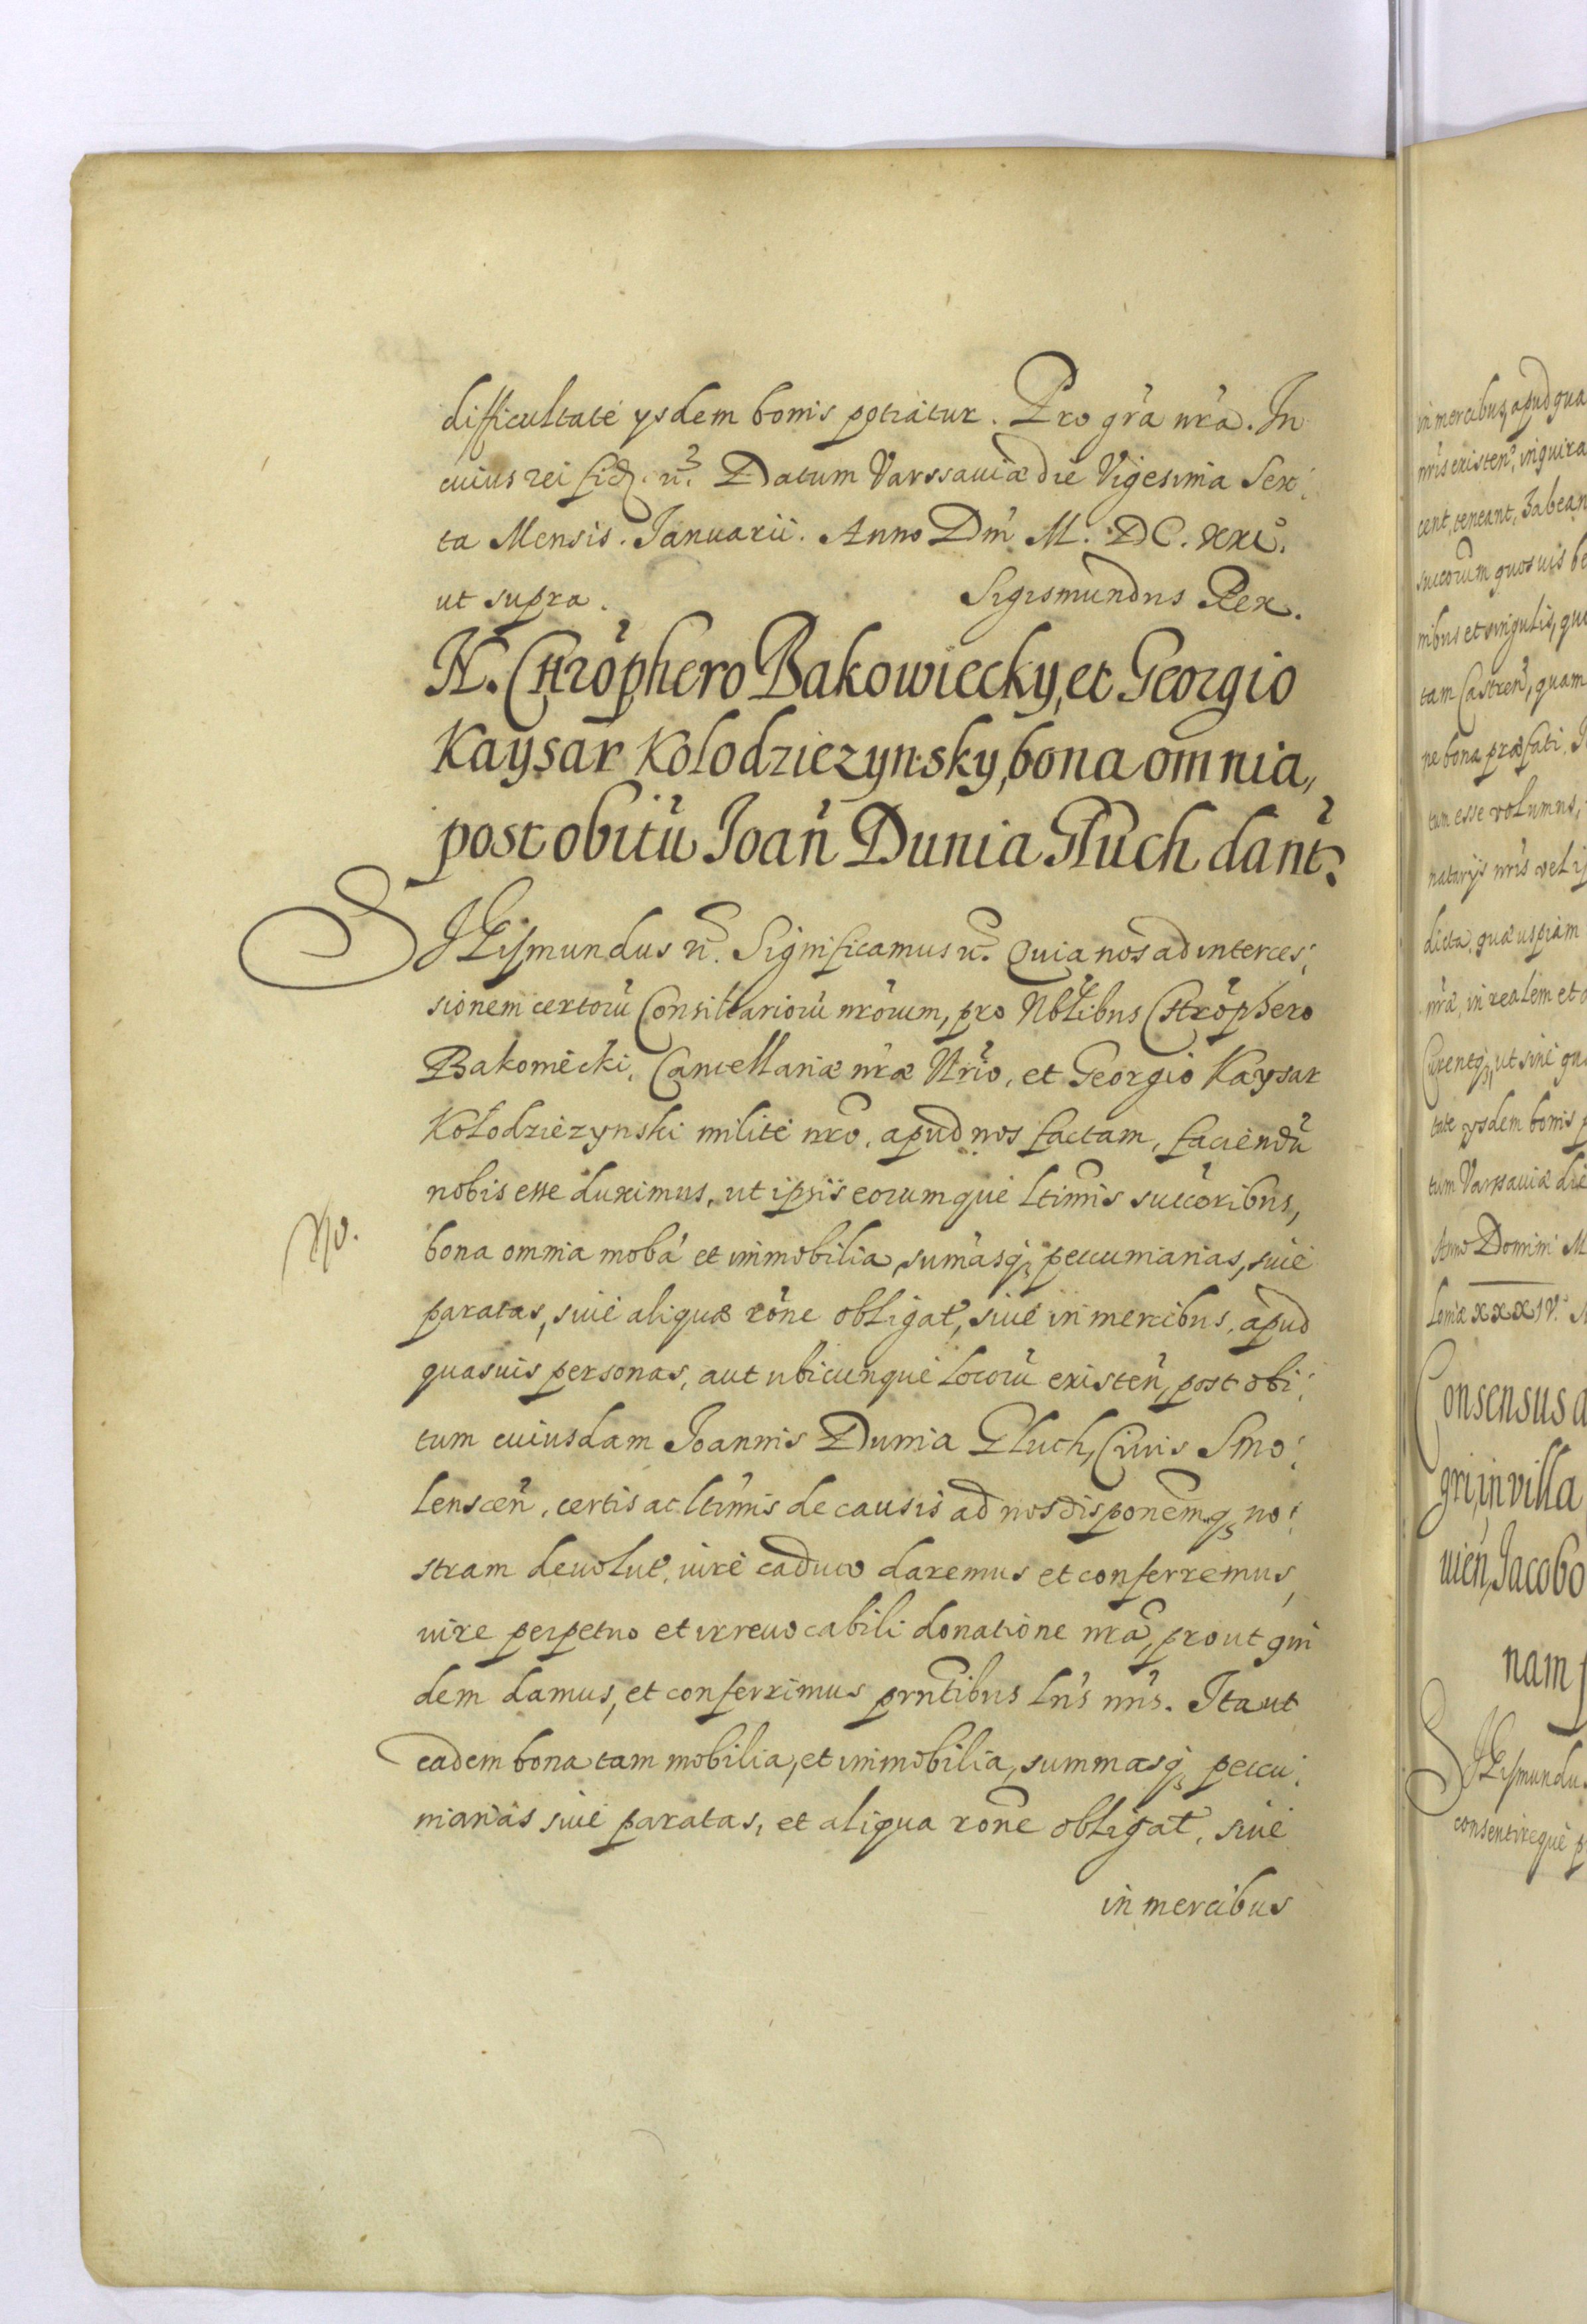 difficultate ysdem bonis potiatur. Pro gra nra. In
cuius rei fid. rc. Datum Varssauiæ die Vigesima Sex:
ta Mensis. Januarii. Anno Dni M. DC. XXI.
ut supra. Sigismundus Rex.
N. Chrophero Bakowiecky, et Georgio
Kaysar Kolodziezynsky, bona omnia,
post obitu Joan Dunia Gluch dant.
SIGismundus rc. Significamus rc. Quia nos ad interces:
sionem certoru Consiliarioru nrorum, pro Nblibus Chrophero
Bakowiecki, Cancellariæ nræ Nrio, et Georgio Kaysar
Kolodziezynski milite nro, apud nos factam, faciendu
nobis esse duximus, ut ipsis eorumque ltimis succoribus,
bona omnia moba et immobilia, sumasq; peccuniarias, siue
paratas, siue aliqua rone obligat, siue in mercibus, apud
quasuis personas, aut ubicunque locoru existen, post obi:
tum cuiusdam Joannis Dunia Gluch, Ciuis Smo:
lenscen, certis ac ltimis de causis ad nos disponemq; no:
stram deuolut, iure caduco daremus et conferremus,
iure perpetuo et irreuocabili donatione nra, prout qui
dem damus, et conferrimus prntibus lris nris. Ita ut
eadem bona tam mobilia, et immobilia, summasq; peccu:
niarias siue paratas, et aliqua rone obligat, siue
in mercibus
No.
in mercibus, apud qua
nris existen, inquira
cent, teneant, habean
succorum quosuis be
nibus et singulis, qui
tam Castren, quam
ne bona præfati, J
tum esse volumus,
natarijs nris vel ij
dicta, quæ uspiam
nra, in realem et
Curentq;, ut sine qu
tate ysdem bonis p
tum Varssauiæ die
Anno Domini M
loniæ XXXIV. 
Consensus a
gri, in villa
uien, Jacobo
nam
SIGismundus
consentireque p